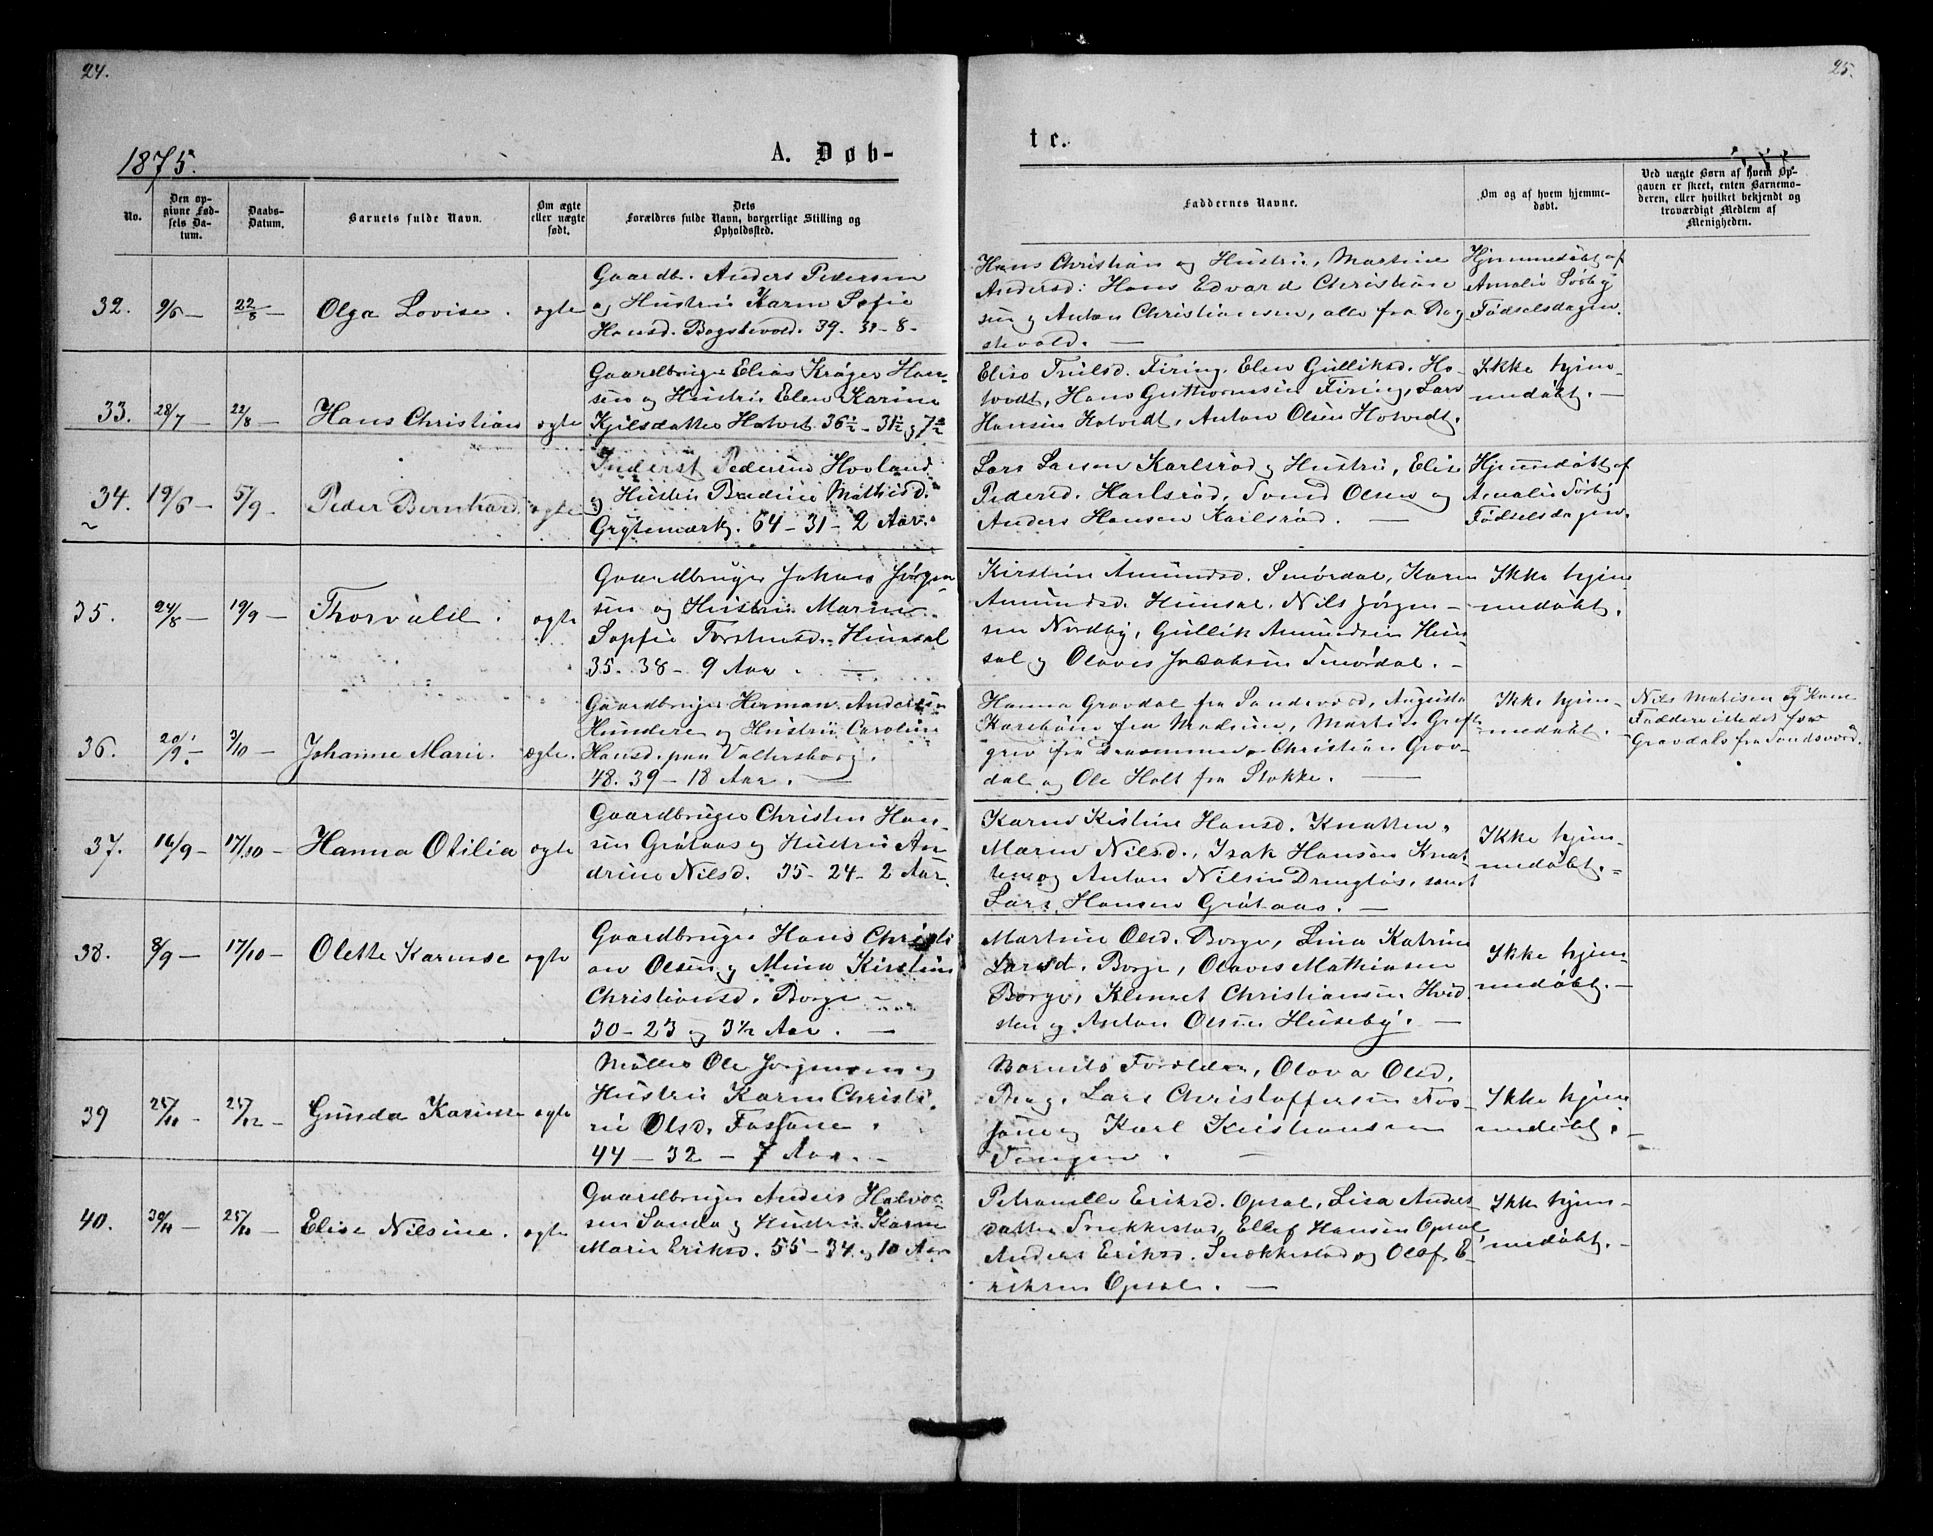 24.
25.
1875.
A. Døb-
te.
No.
Den op-
givne Fød-
sels Da-
tum.
Daabs-
Datum.
Barnets fulde Navn.
Om ægte
eller uægte
født.
Dets
Forældres fulde Navn, borgerlige Stilling og
Opholdssted.
Faddernes Navne.
Om og af hvem hjemme-
døbt.
Ved uægte Børn af hvem Op-
gaven er skeet, enten Barnemo-
deren, eller hvilket bekjendt og
troværdigt Medlem af
Menigheden.
32. 9/6 – 22/8 – Olga Lovise. ægte
Gaardb. Anders Pedersen
og Hustru Karen Sofie
Hansd. Bogstevold. 39. 31 – 8 –
Hans Christian og Hustru, Martine
Andersd: Hans Edvard Christian-
sen og Anton Christiansen, alle fra Bog
stevold. –
Hjemmedøbt af
Amalie Sørby
Fødselsdagen.
33. 28/7 – 22/8 – Hans Christian ægte
Gaardbruger Elias Krøger Han-
sen og Hustru Elen Karine
Kjilsdatter Hotvet 36½ – 31½ og 7½
Elise Trulsd. Firing, Elen Gulliksd. Ho-
tvedt, Hans Guthormsen Firing, Lars
Hansen Hotvedt, Anton Olsen Hotvedt.
Ikke hjem-
medøbt. –
34. 19/6 – 5/9 – Peder Bernhard ægte
Inderst Pedersen Hovland
og Hustru Bredine Mathisd.
Grytemærk. 64 – 31 – 2 Aar.
Lars Larsen Karlsrød og Hustru, Elise
Pedersd. Karlsrød, Svend Olsen og
Anders Hansen Karlsrød. –
Hjemmedøbt af
Amalie Sørby
Fødselsdagen.
35. 24/8 – 19/9 – Thorvald. ægte
Gaardbruger Johan Jørgen-
sen og Hustru Maren
Sophie Torstensd. Himsal
35. 38 – 9 Aar. –
Kirstine Amundsd. Smørdal, Karen
Amundsd. Himsal, Nils Jørgen-
sen Nordby, Gullik Amundsen Him-
sal og Olaves Jacobsen Smørdal. –
Ikke hjem-
medøbt.
36. 20/9 – 3/10 – Johanne Marie. ægte.
Gaardbruger Herman Andersen
Hundere og Hustru Caroline
Hansd. paa Valtersborg.
48. 39 – 18 Aar. –
Hanna Gravdal fra Sandeverd, Augusta
fra Modum, Martin
fra Drammen, Christian Grav-
dal og Ole Holt fra Stokke. –
Ikke hjem-
medøbt. –
Nils Matisen og Kone
for
Gravdals fra Sandeverd.
37. 16/9 – 17/10 – Hanna Otilia ægte
Gaardbruger Christen Han-
sen Gråtaas og Hustru An-
drine Nilsd. 35 – 24 – 2 Aar.
Karen Kistine Hansd. Knatten,
Maren Nilsd., Isak Hansen Knat-
ten og Anton Nilsen samt
Lars Hansen Gråtaas. –
Ikke hjem-
medøbt. –
38. 8/9 – 17/10 – Olette Karense ægte
Gaardbruger Hans Christi
an Olsen og Mina Kirstine
Christiansd. Borge –
30 – 23 og 3½ Aar. –
Martine Olsd. Borge, Lina Katrine
Larsd. Borge, Olaves Mathiasen
Borge, Klemet Christiansen Hvid-
sten og Anton Olsen Huseby. –
Ikke hjem-
medøbt. –
39 25/10 – 25/12 – Gunda Karense ægte
Møller Ole Jørgensen og
Hustru Karen Christi-
ne Olsd. Fossane.
44 – 32 – 7 Aar. –
Barnets Forældre, Olava Olsd.
Berg, Lars Christoffersen Fos-
sane og Karl Kristiansen
Tangen. –
Ikke hjem
medøbt. –
40. 25/10 – Elise Nilsine. ægte
Gaardbruger Anders Halvor-
sen Sando og Hustru Karen
Marie Eriksd. 55 – 34 og 10 Aar
Petronelle Eriksd. Opsal, Lisa Anders-
datter Snekkestad, Ellef Hansen Opsal
Anders Eriksd. Snekkestad og Olaf E-
riksen Opsal. –
Ikke hjem-
medøbt. –